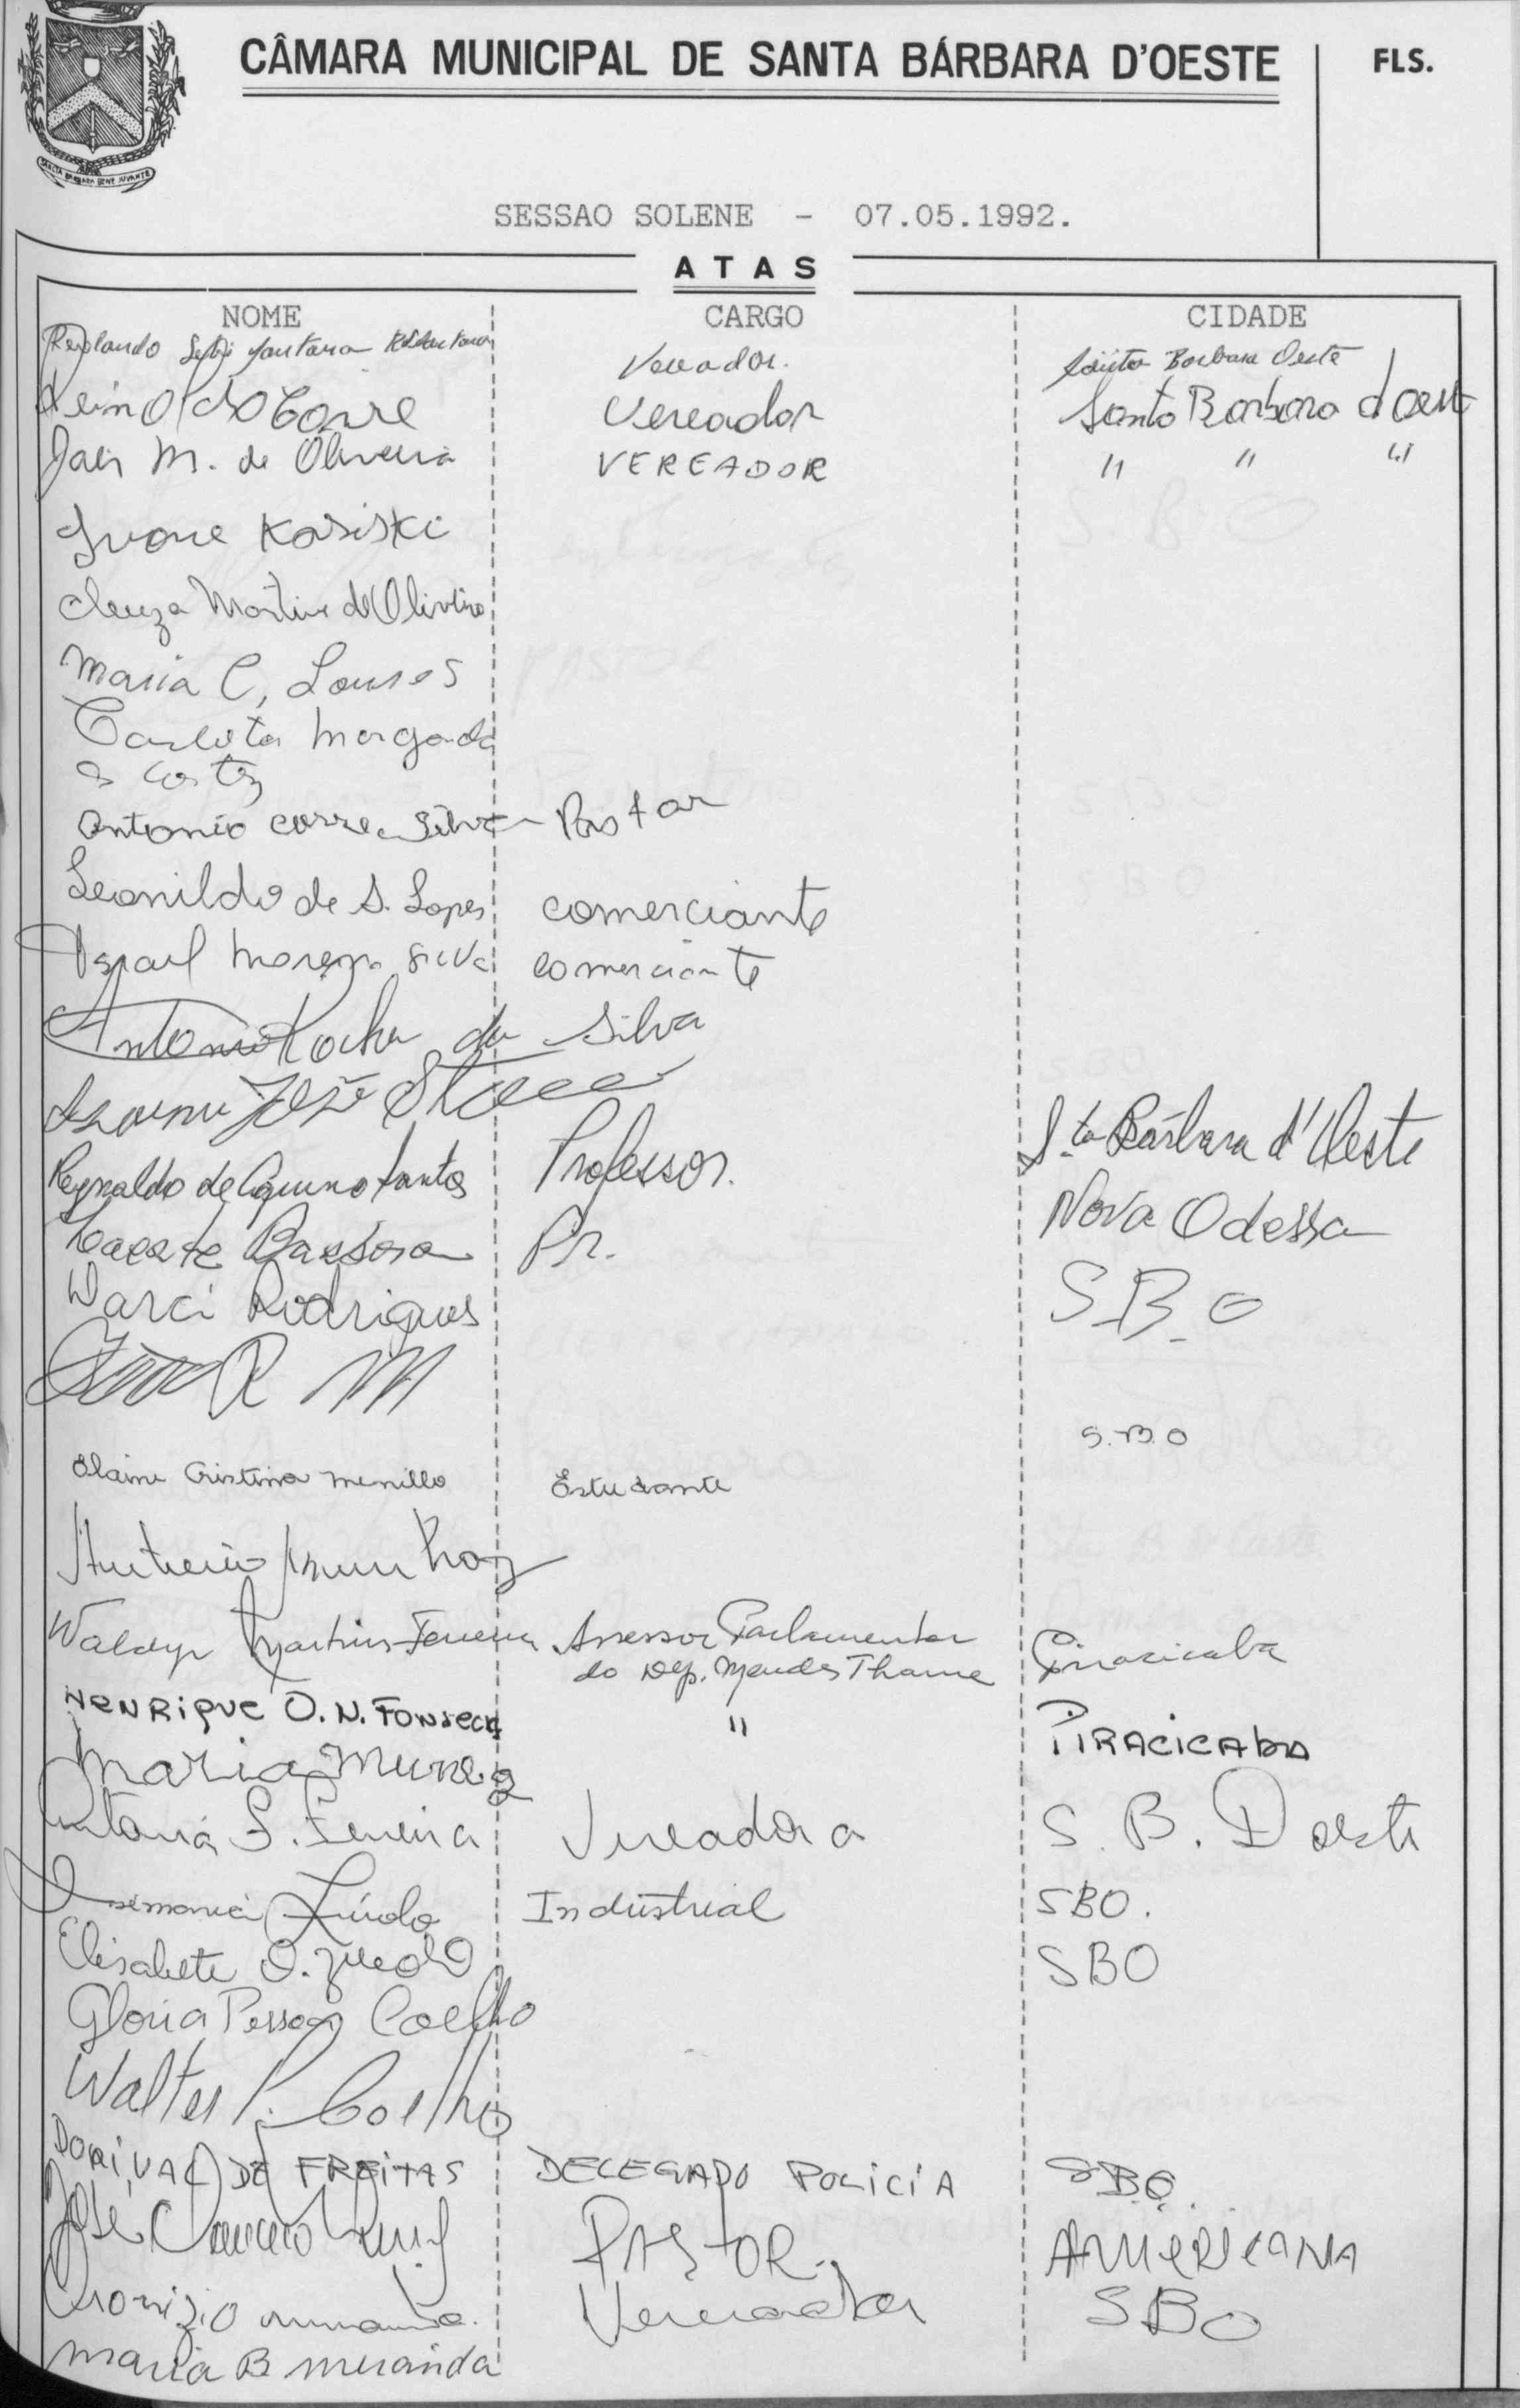 CÂMARA MUNICIPAL DE SANTA BÁRBARA D'OESTE
FLS.
SANCTA BARBARA BENE JUVANTE
SESSAO SOLENE - 07.05.1992.
ATAS
NOME CARGO CIDADE
Santana Vereador. Barbara Oeste
Vereador Santa Barbara d'Oest
M. de Oliveira VEREADOR " " "
Ivone Kosiski
Cleuza Martins de Oliveira
Maria C, Loures
Carlota Morgada
Antonio correa Silva Pastor
Leonildo de S. Lopes comerciante
Israel Silva comerciante
Antonio Rocha da Silva
José
Reynaldo de Aquino Santos Professor. Sta Bárbara d'Oeste
Barbosa Pr. Nova Odessa
Darci Rodrigues S.B.O
S.B.O
Elaine Cristina Menillo Estudante
Antonio Munhoz
Waldyr Martins Ferreira Assessor Parlamentar Piracicaba
do Dep. Mendes Thame
HENRIQUE O. N. FONSECA " PIRACICABA
Maria Munoz
Antonia S. Ferreira Vereadora S. B. Doeste
Industrial SBO.
Elisabete O. SBO
Gloria Pessoa Coelho
Walter P. Coelho
DORIVAL DE FREITAS DELEGADO POLICIA SBO.
José PASTOR. AMERICANA
Vereador SBO
Maria B Miranda